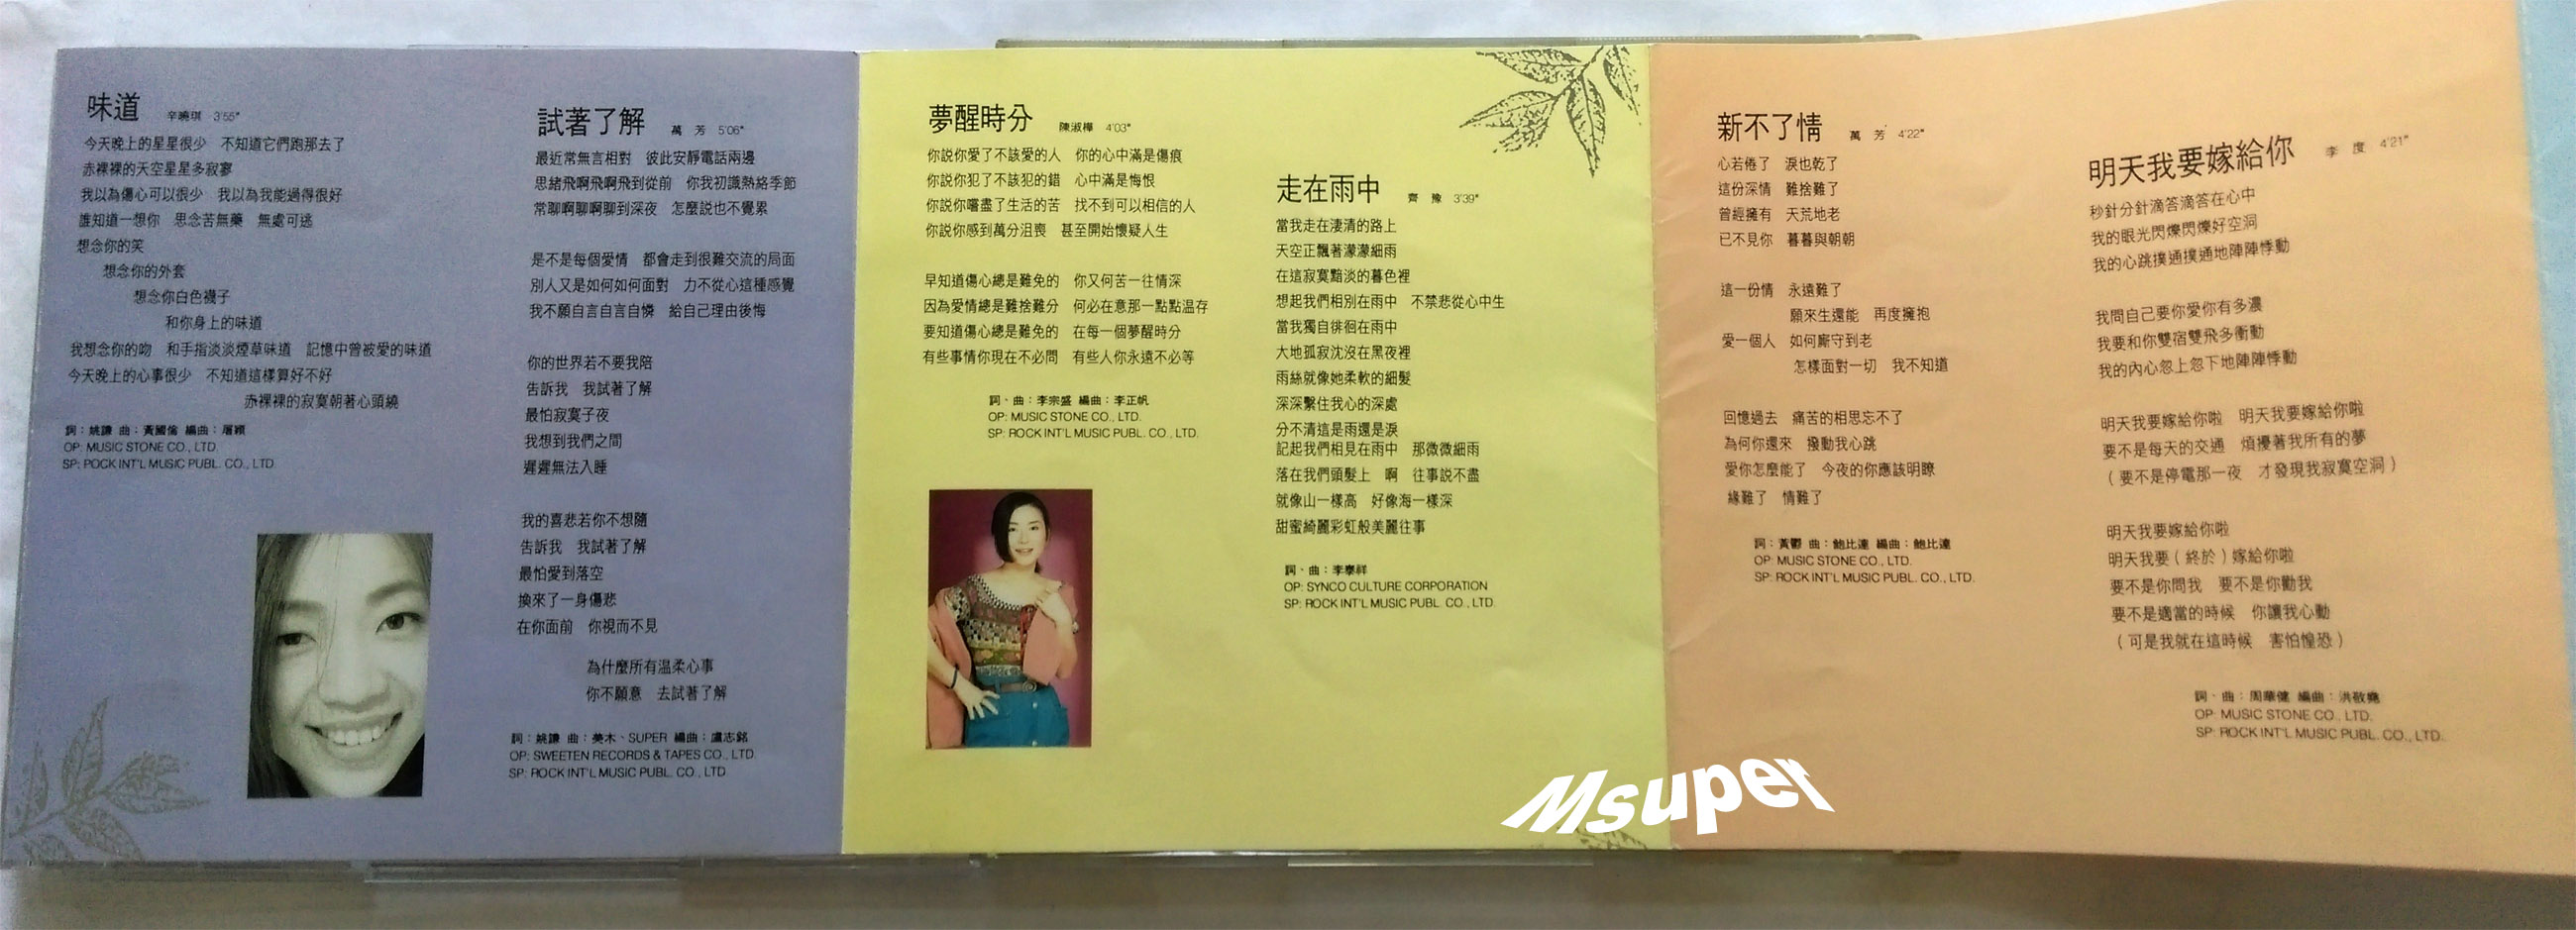 味道 辛曉琪 3'55"
今天晚上的星星很少 不知道它們跑那去了
赤裸裸的天空星星多寂寥
我以為傷心可以很少 我以為我能過得很好
誰知道一想你 思念苦無藥 無處可逃
想念你的笑
想念你的外套
想念你白色襪子
和你身上的味道
我想念你的吻 和手指淡淡煙草味道 記憶中曾被愛的味道
今天晚上的心事很少 不知道這樣算好不好
赤裸裸的寂寞朝著心頭繞
詞：姚謙 曲：黃國倫 編曲：屠穎
OP: MUSIC STONE CO., LTD.
SP: ROCK INT'L MUSIC PUBL. CO., LTD.
試著了解 萬芳 5'06"
最近常無言相對 彼此安靜電話兩邊
思緒飛啊飛啊飛到從前 你我初識熱絡季節
常聊啊聊啊聊到深夜 怎麼說也不覺累
是不是每個愛情 都會走到很難交流的局面
別人又是如何如何面對 力不從心這種感覺
我不願自言自言自憐 給自己理由後悔
你的世界若不要我陪
告訴我 我試著了解
最怕寂寞子夜
我想到我們之間
遲遲無法入睡
我的喜悲若你不想隨
告訴我 我試著了解
最怕愛到落空
換來了一身傷悲
在你面前 你視而不見
為什麼所有溫柔心事
你不願意 去試著了解
詞：姚謙 曲：美木、SUPER 編曲：盧志銘
OP: SWEETEN RECORDS & TAPES CO., LTD.
SP: ROCK INT'L MUSIC PUBL. CO., LTD.
夢醒時分 陳淑樺 4'03"
你說你愛了不該愛的人 你的心中滿是傷痕
你說你犯了不該犯的錯 心中滿是悔恨
你說你嚐盡了生活的苦 找不到可以相信的人
你說你感到萬分沮喪 甚至開始懷疑人生
早知道傷心總是難免的 你又何苦一往情深
因為愛情總是難捨難分 何必在意那一點點溫存
要知道傷心總是難免的 在每一個夢醒時分
有些事情你現在不必問 有些人你永遠不必等
詞、曲：李宗盛 編曲：李正帆
OP: MUSIC STONE CO., LTD.
SP: ROCK INT'L MUSIC PUBL. CO., LTD.
走在雨中 齊豫 3'39"
當我走在淒清的路上
天空正飄著濛濛細雨
在這寂寞黯淡的暮色裡
想起我們相別在雨中 不禁悲從心中生
當我獨自徘徊在雨中
大地孤寂沈沒在黑夜裡
雨絲就像她柔軟的細髮
深深繫住我心的深處
分不清這是雨還是淚
記起我們相見在雨中 那微微細雨
落在我們頭髮上 啊 往事說不盡
就像山一樣高 好像海一樣深
甜蜜綺麗彩虹般美麗往事
詞、曲：李泰祥
OP: SYNCO CULTURE CORPORATION
SP: ROCK INT'L MUSIC PUBL. CO., LTD.
新不了情 萬芳 4'22"
心若倦了 淚也乾了
這份深情 難捨難了
曾經擁有 天荒地老
已不見你 暮暮與朝朝
這一份情 永遠難了
願來生還能 再度擁抱
愛一個人 如何廝守到老
怎樣面對一切 我不知道
回憶過去 痛苦的相思忘不了
為何你還來 撥動我心跳
愛你怎麼能了 今夜的你應該明瞭
緣難了 情難了
詞：黃鬱 曲：鮑比達 編曲：鮑比達
OP: MUSIC STONE CO., LTD.
SP: ROCK INT'L MUSIC PUBL. CO., LTD.
明天我要嫁給你 李度 4'21"
秒針分針滴答滴答在心中
我的眼光閃爍閃爍好空洞
我的心跳撲通撲通地陣陣悸動
我問自己要你愛你有多濃
我要和你雙宿雙飛多衝動
我的內心忽上忽下地陣陣悸動
明天我要嫁給你啦 明天我要嫁給你啦
要不是每天的交通 煩擾著我所有的夢
（要不是停電那一夜 才發現我寂寞空洞）
明天我要嫁給你啦
明天我要（終於）嫁給你啦
要不是你問我 要不是你勸我
要不是適當的時候 你讓我心動
（可是我就在這時候 害怕惶恐）
詞、曲：周華健 編曲：洪敬堯
OP: MUSIC STONE CO., LTD.
SP: ROCK INT'L MUSIC PUBL. CO., LTD.
Msuper